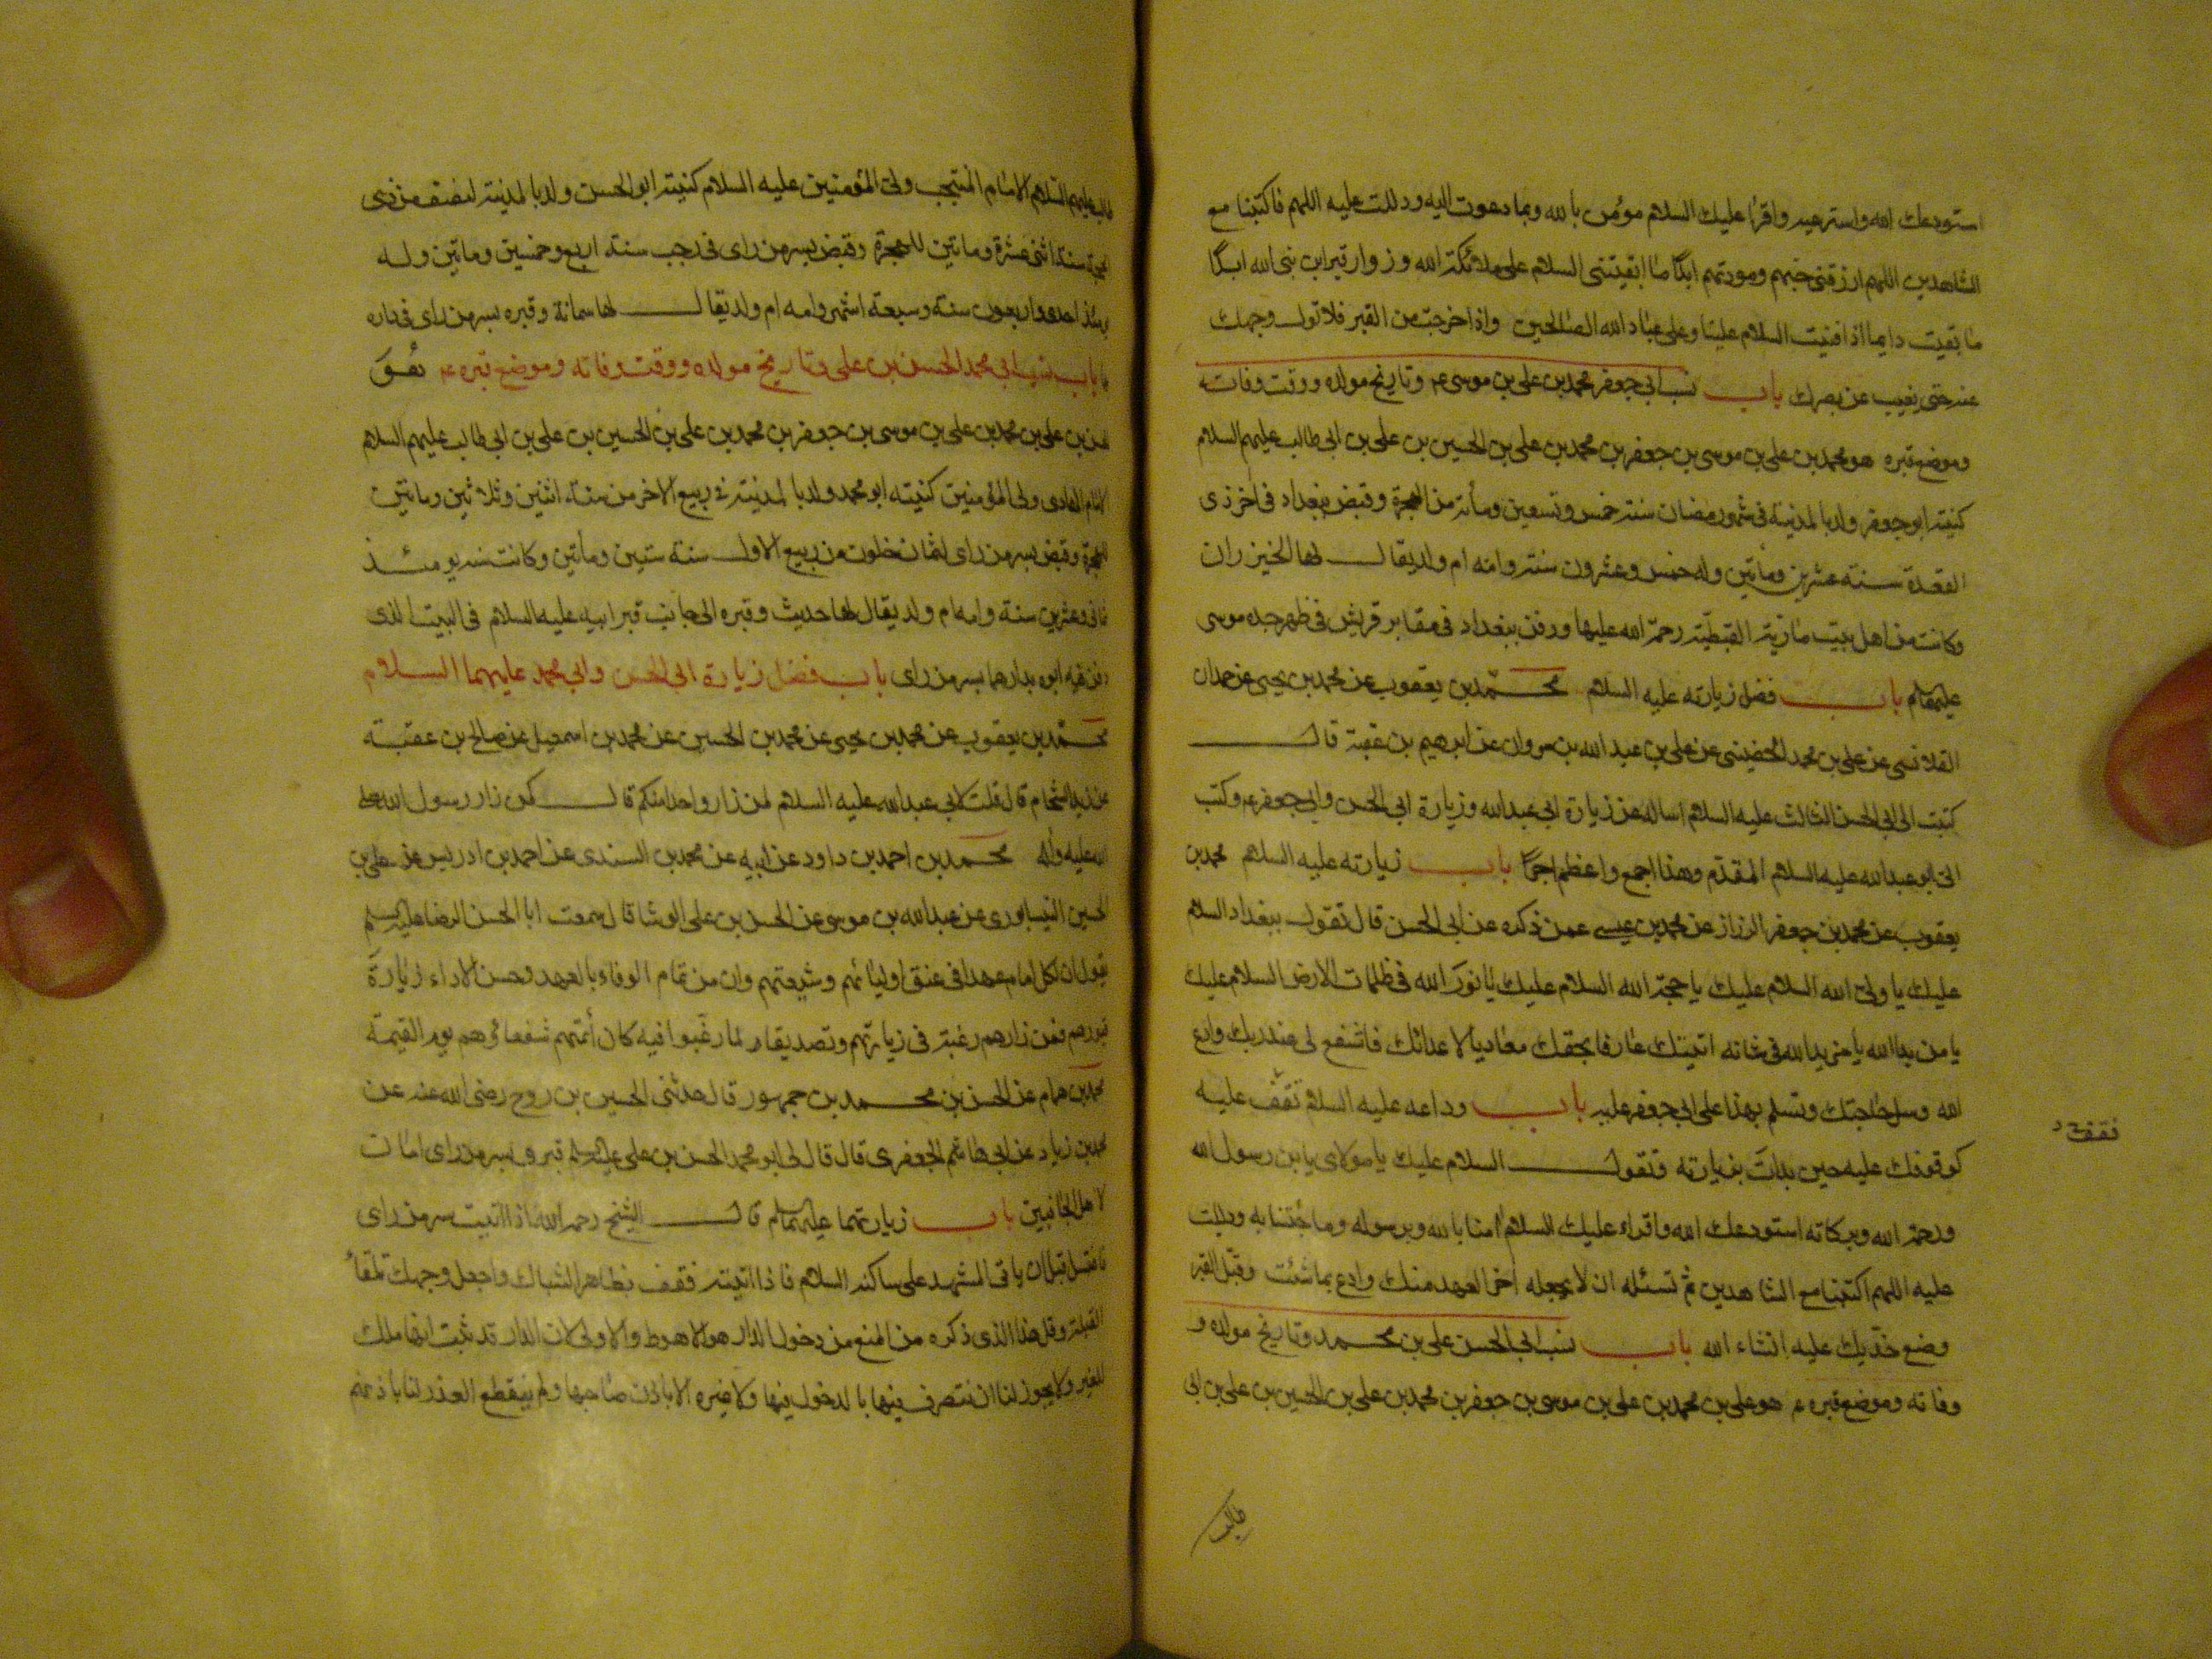 استودعك الله واسترعيه واقرا عليك السلام مؤمن بالله وبما دعوت اليه ودللت عليه اللهم فاكتبنا مع
الشاهدين اللهم ارزقنى حبهم ومودتهم ابدًا ما ابقيتنى السلام على ملائكة الله وزوار قبر ابن نبى الله ابدًا
ما بقيت دايما اذا فنيت السلام علينا وعلى عباد الله الصالحين واذا خرجت من القبر فلا تول وجهك
عنه حتى يغيب عن بصرك باب نسب ابى جعفر محمد بن على بن موسى ع وتاريخ مولده ووقت وفاته
وموضع قبره هو محمد بن على بن موسى بن جعفر بن محمد بن على بن الحسين بن على بن ابى طالب عليهم السلام
كنيته ابو جعفر ولد بالمدينة فى شهر رمضان سنة خمس وتسعين ومأة من الهجرة وقبض ببغداد فى اخر ذى
القعدة سنة عشرين ومأتين وله خمس وعشرون سنة وامه ام ولد يقال لها الخيزران
وكانت من اهل بيت مارية القبطية رحمة الله عليها ودفن ببغداد فى مقابر قريش فى ظهر جده موسى
باب فضل زيارته عليه السلام محمد بن يعقوب عن محمد بن يحيى عن حمدان
القلانسى عن على بن محمد الحضينى عن على بن عبد الله بن مروان عن ابرهيم بن عقبة قال
كتبت الى ابى الحسن الثالث عليه السلام اساله عن زيارة ابى عبد الله وزيارة ابى الحسن وابى جعفر ع وكتب
الى ابو عبد الله عليه السلام المقدم وهذا اجمع واعظم اجرًا باب زيارته عليه السلام محمد بن
يعقوب عن محمد بن جعفر الرزاز عن محمد بن عيسى عمن ذكره عن ابى الحسن قال تقول ببغداد السلام
عليك يا ولى الله السلام عليك يا حجة الله السلام عليك يا نور الله فى ظلمات الارض السلام عليك
يا من بدا الله يا من بدا لله فى شانه اتيتك عارفا بحقك معاديا لاعدائك فاشفع لى عند ربك وادع
الله وسل حاجتك وتسلم بهذا على ابى جعفر باب وداعه عليه السلام تقف عليه
تقف
كوقوفك عليه حين بدات بزيارته وتقول السلام عليك يا مولاى يابن رسول الله
ورحمة الله وبركاته استودعك الله واقراء عليك السلام امنا بالله وبرسوله وما جئتنا به ودللت
عليه اللهم اكتبنا مع الشاهدين ثم تسئله ان لا يجعله اخر العهد منك وادع بما شئت وقبل القبر
وضع خديك عليه انشاء الله باب نسب ابى الحسن على بن محمد وتاريخ مولده و
وفاته وموضع قبره ع هو على بن محمد بن على بن موسى بن جعفر بن محمد بن على بن الحسين بن على بن ابى
طالب
طالب عليهم السلام الامام المنتجب ولى المؤمنين عليه السلام كنيته ابو الحسن ولد بالمدينة لنصف من ذى
الحجة سنة اثنى عشرة وماتين للهجرة وقبض بسر من راى فى رجب سنة اربع وخمسين وماتين وله
يومئذ احدى واربعون سنة وسبعة اشهر وامه ام ولد يقال لها سمانة وقبره بسر من راى فى داره
باب نسب ابى محمد الحسن بن على وتاريخ مولده ووقت وفاته وموضع قبره ع هو
الحسن بن على بن محمد بن على بن موسى بن جعفر بن محمد بن على بن الحسين بن على بن ابى طالب عليهم السلام
الامام الهادى ولى المؤمنين كنيته ابو محمد ولد بالمدينة فى ربيع الاخر من سنة اثنين وثلاثين وماتين
للهجرة وقبض بسر من راى لثمان خلون من ربيع الاول سنة ستين ومأتين وكانت سنه يومئذ
ثمانى وعشرين سنة وامه ام ولد يقال لها حديث وقبره الى جانب قبر ابيه عليه السلام فى البيت الذى
دفن فيه ابوه بدارهما بسر من راى باب فضل زيارة ابى الحسن وابى محمد عليهما السلام
محمد بن يعقوب عن محمد بن يحيى عن محمد بن الحسين عن محمد بن اسمعيل عن صالح بن عقبة
عن زيد الشحام قال قلت لابى عبد الله عليه السلام لمن زار واحدا منكم قال كمن زار رسول الله صلى
الله عليه وآله محمد بن احمد بن داود عن ابيه عن محمد بن السندى عن احمد بن ادريس عن على بن
الحسين النيسابورى عن عبد الله بن موسى عن الحسن بن على الوشا قال سمعت ابا الحسن الرضا
يقول ان لكل امام عهدا فى عنق اوليائهم وشيعتهم وان من تمام الوفاء بالعهد وحسن الاداء زيارة
قبورهم فمن زارهم رغبة فى زيارتهم وتصديقا لما رغبوا فيه كان أئمتهم شفعاؤهم يوم القيمة
محمد بن همام عن الحسن بن محمد بن جمهور قال حدثنى الحسين بن روح رضى الله عنه عن
محمد بن زياد عن ابى هاشم الجعفرى قال قال لى ابو محمد الحسن بن على قبرى بسر من راى امان
لاهل الجانبين باب زيارتهما قال الشيخ رحمه الله اذا اتيت سر من راى
فاغتسل قبل ان ياتى المشهد على ساكنه السلام فاذا اتيته فقف بظاهر الشباك واجعل وجهك تلقاء
القبلة وقل هذا الذى ذكره من المنع من دخول الدار هو الاحوط والاولى لان الدار قد ثبت انها ملك
للغير ولا يجوز لنا ان نتصرف فيها بالدخول فيها ولا غيره الا باذن صاحبها ولم ينقطع العذر لنا باذنهم